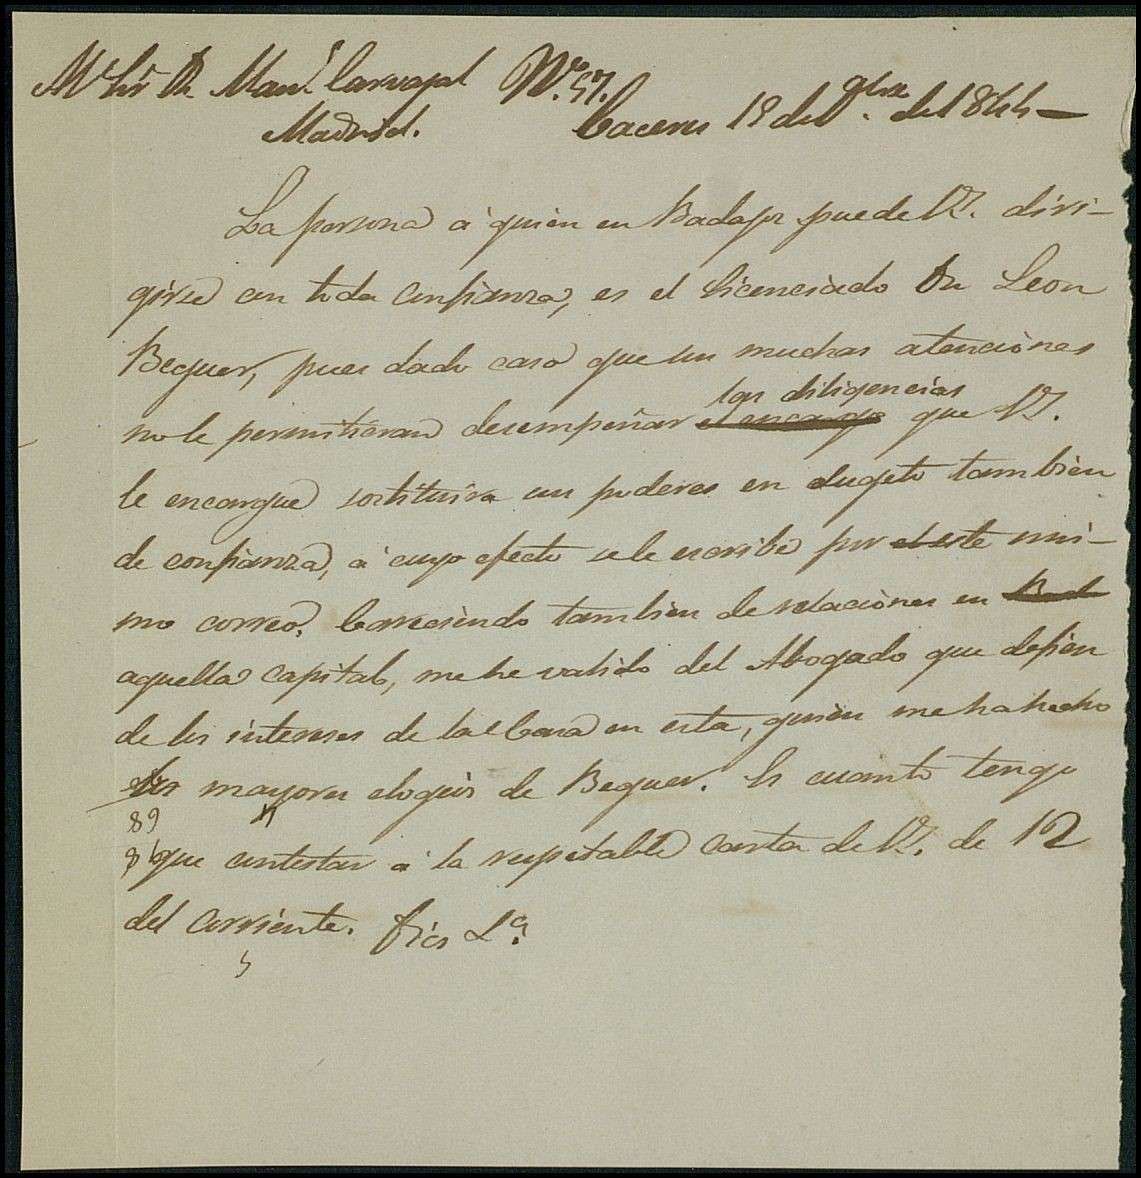 M. Sr. Dn. Manl. Carvajal Nº. 57.
Madrid. Caceres 19 de 9bre de 1844 -
La persona á quien en Badajoz puede V. diri-
girse con toda confianza, es el Licenciado Dn Leon
Bequer, pues dado caso que sus muchas atenciones
las diligencias
no le permitieran desempeñar el encargo que V.
le encargue sostituira sus poderes en sugeto tambien
de confianza, á cuyo efecto se le escribe por el este mis-
mo correo. Careciendo tambien de relaciones en Bad
aquella capital, me he valido del Abogado que defien
de los intereses de la Casa en esta, quien me ha hecho
los mayores elogios de Bequer. Es cuanto tengo
89
que contestar á la respetable carta de V. de 12
del corriente. fios La.